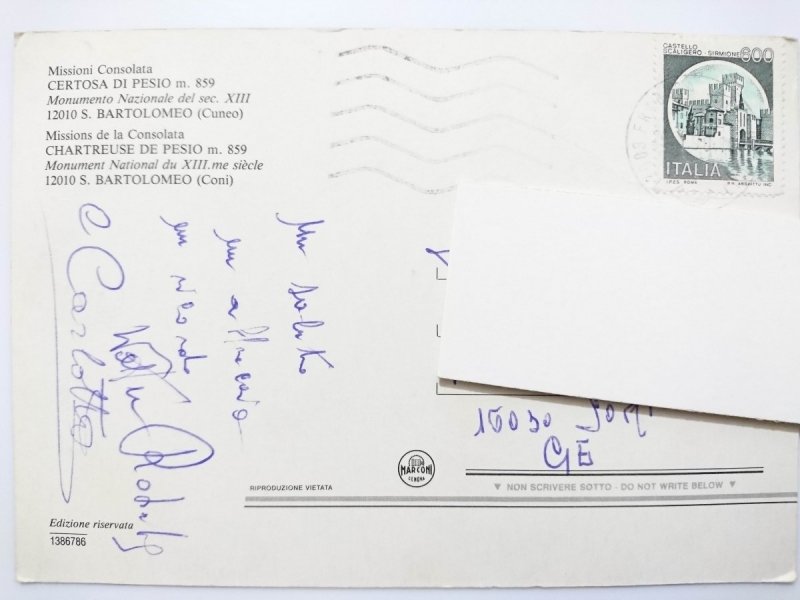 Missioni Consolata
CERTOSA DI PESIO m. 859
Monumento Nazionale del sec. XIII
12010 S. BARTOLOMEO (Cuneo)
Missions de la Consolata
CHARTREUSE DE PESIO m. 859
Monument National du XIII.me siècle
12010 S. BARTOLOMEO (Coni)
CASTELLO
SCALIGERO - SIRMIONE
600
ITALIA
I.P.Z.S. ROMA
Un saluto
un abbraccio
un ricordo
Carlotta
GE
MARCONI
GENOVA
RIPRODUZIONE VIETATA
▼ NON SCRIVERE SOTTO - DO NOT WRITE BELOW ▼
Edizione riservata
1386786